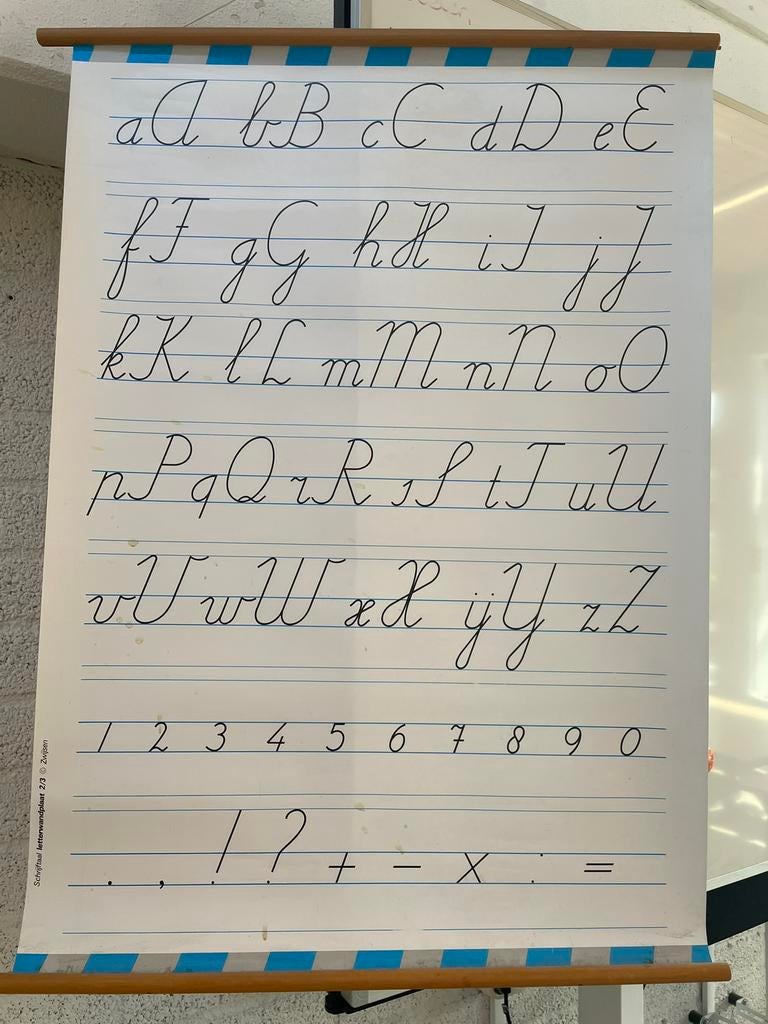 aA bB cC dD eE
fF gG hH iI jJ
kK lL mM nN oO
pP qQ rR sS tT uU
vV wW xX ijY zZ
1 2 3 4 5 6 7 8 9 0
. , ! ? + - x : =
Schrijftaal letterwandplaat 2/3 © Zwijsen